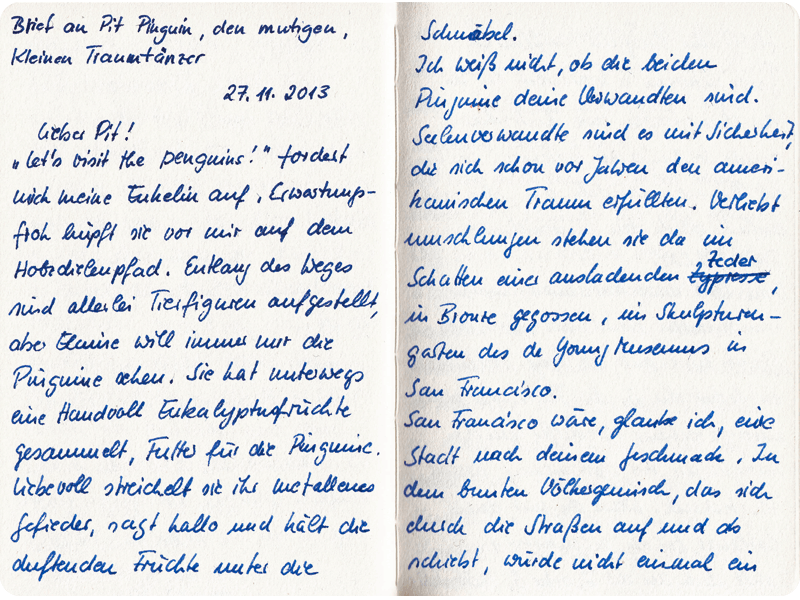 Brief an Pit Pinguin, den mutigen,
kleinen Traumtänzer
27. 11. 2013
Lieber Pit!
„Let's visit the penguins!" fordert
mich meine Enkelin auf. Erwartungs-
froh hüpft sie vor mir auf dem
Holzdielenpfad. Entlang des Weges
sind allerlei Tierfiguren aufgestellt,
aber Elaine will immer nur die
Pinguine sehen. Sie hat unterwegs
eine Handvoll Eukalyptusfrüchte
gesammelt, Futter für die Pinguine.
Liebevoll streichelt sie ihr metallenes
Gefieder, sagt hallo und hält die
duftenden Früchte unter die
Schnäbel.
Ich weiß nicht, ob die beiden
Pinguine deine Verwandten sind.
Seelenverwandte sind es mit Sicherheit,
die sich schon vor Jahren den ameri-
kanischen Traum erfüllten. Verliebt
umschlungen stehen sie da im
Schatten einer ausladenden Zypresse, Zeder,
in Bronze gegossen, im Skulpturen-
garten des de Young Museums in
San Francisco.
San Francisco wäre, glaube ich, eine
Stadt nach deinem Geschmack. In
dem bunten Völkergemisch, das sich
durch die Straßen auf und ab
schiebt, würde nicht einmal ein